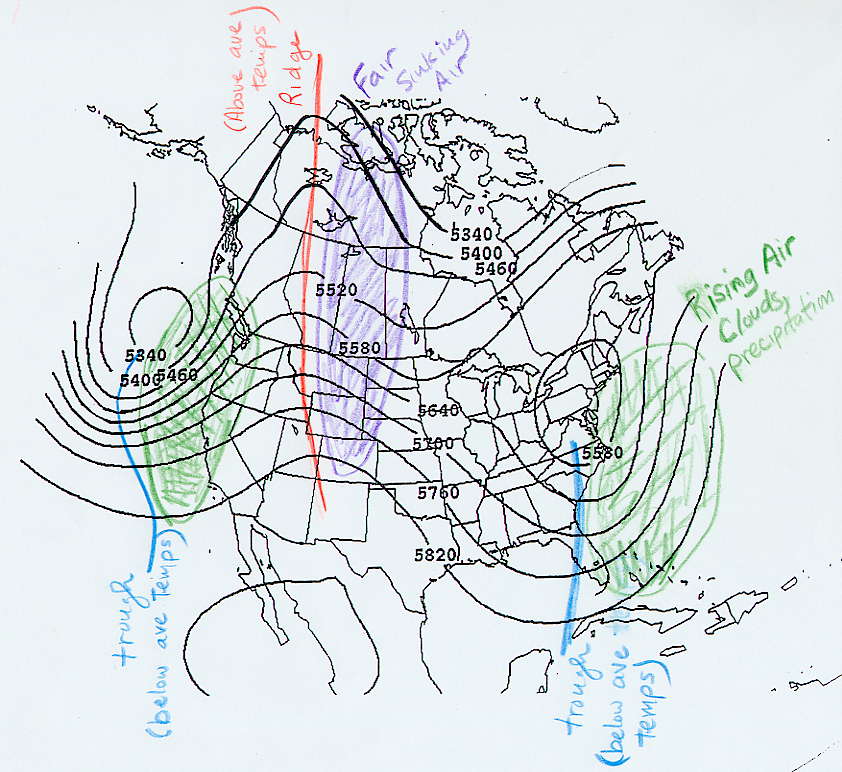 (Above ave
temps)
Ridge
Fair
Sinking
Air
5340
5400
5460
Rising Air
Clouds,
precipitation
5520
5340
5580
5400
5460
5640
5700
5580
5760
5820
trough
(below ave Temps)
trough
(below ave
temps)